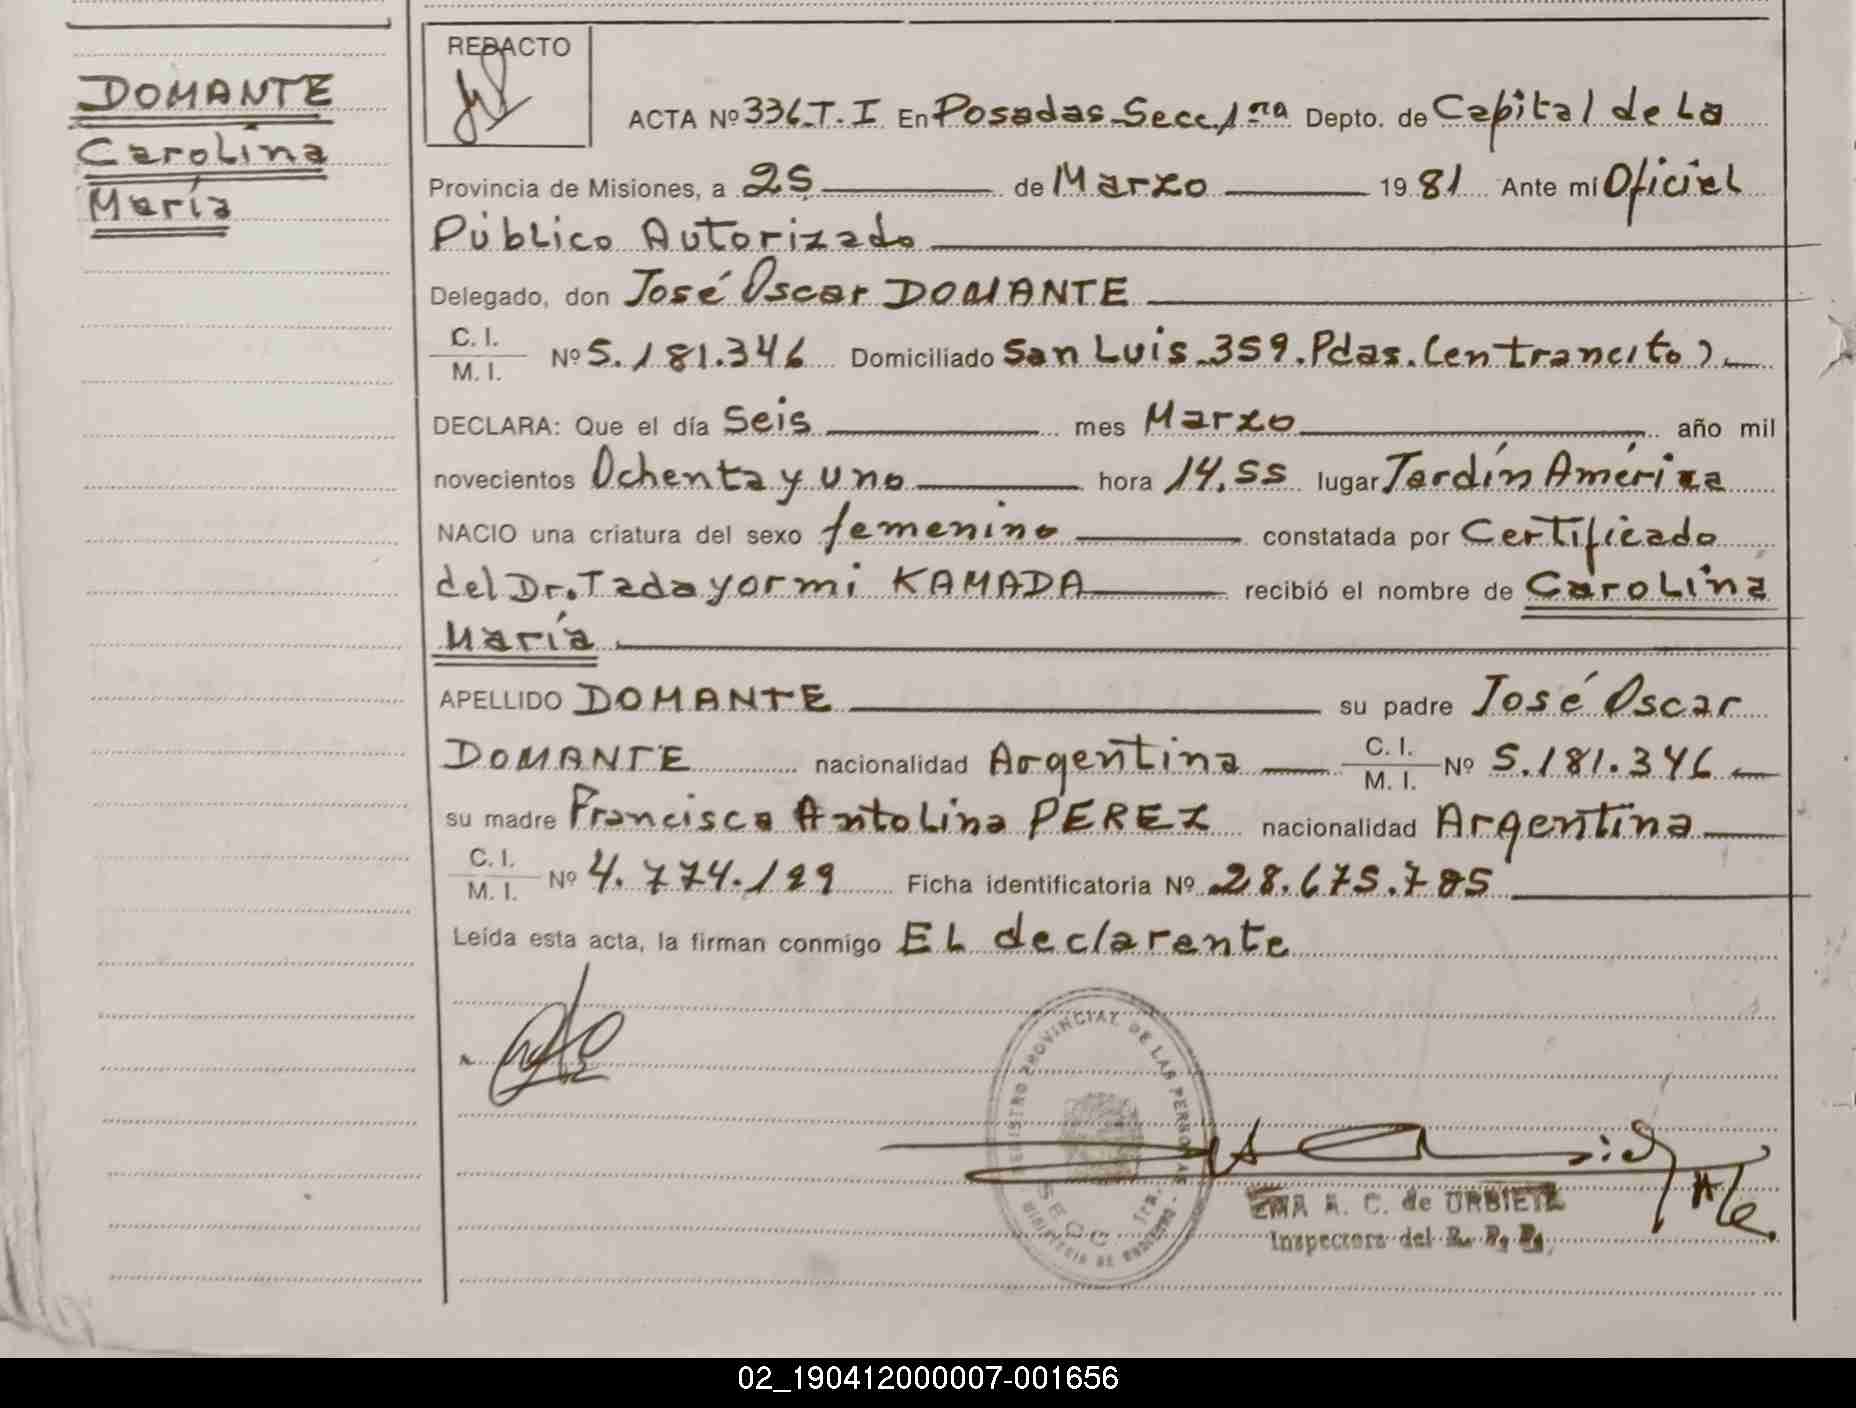 DOMANTE
Carolina
María
REDACTO
ACTA Nº 336.T.I En Posadas Secc. 1ra Depto. de Capital de La
Provincia de Misiones, a 25 de Marzo 1981 Ante mí Oficial
Público Autorizado
Delegado, don José Oscar DOMANTE
C. I.
M. I. Nº 5.181.346 Domiciliado San Luis 359. Pdas. (en trancito)
DECLARA: Que el día Seis mes Marzo año mil
novecientos Ochenta y uno hora 14,55 lugar Jardín América
NACIO una criatura del sexo femenino constatada por Certificado
del Dr. Tadayormi KAMADA recibió el nombre de Carolina
María
APELLIDO DOMANTE su padre José Oscar
DOMANTE nacionalidad Argentina C. I.
M. I. Nº 5.181.346
su madre Francisca Antolina PEREZ nacionalidad Argentina
C. I.
M. I. Nº 4.774.199 Ficha identificatoria Nº 28.675.785
Leída esta acta, la firman conmigo EL declarante
REGISTRO PROVINCIAL DE LAS PERSONAS
SECC. 1ra.
MINISTERIO DE GOBIERNO
EMA A. C. de URBIETA
Inspectora del R. P. P.
02_190412000007-001656